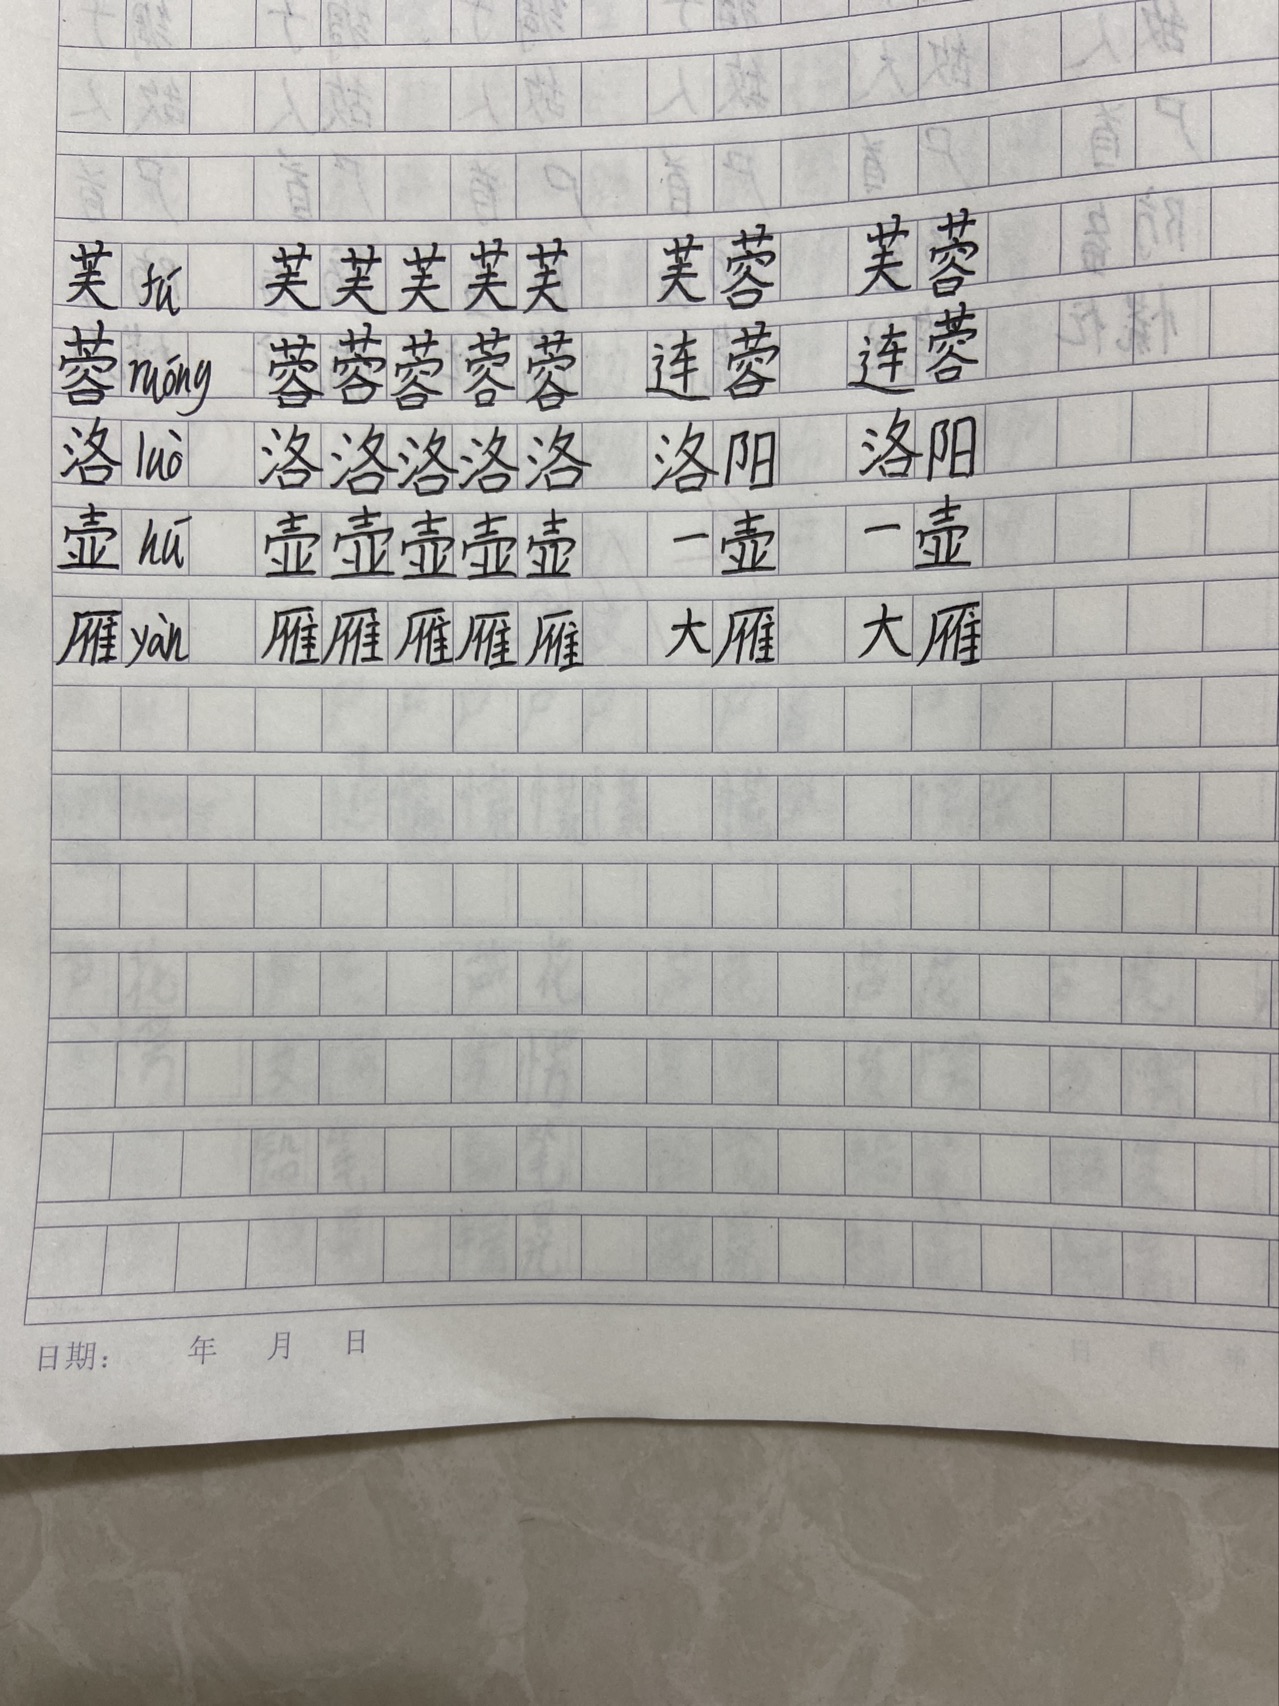 芙 fú 芙 芙 芙 芙 芙 芙蓉 芙蓉
蓉 ruóng 蓉 蓉 蓉 蓉 蓉 连蓉 连蓉
洛 luò 洛 洛 洛 洛 洛 洛阳 洛阳
壶 hú 壶 壶 壶 壶 壶 一壶 一壶
雁 yàn 雁 雁 雁 雁 雁 大雁 大雁
日期: 年 月 日